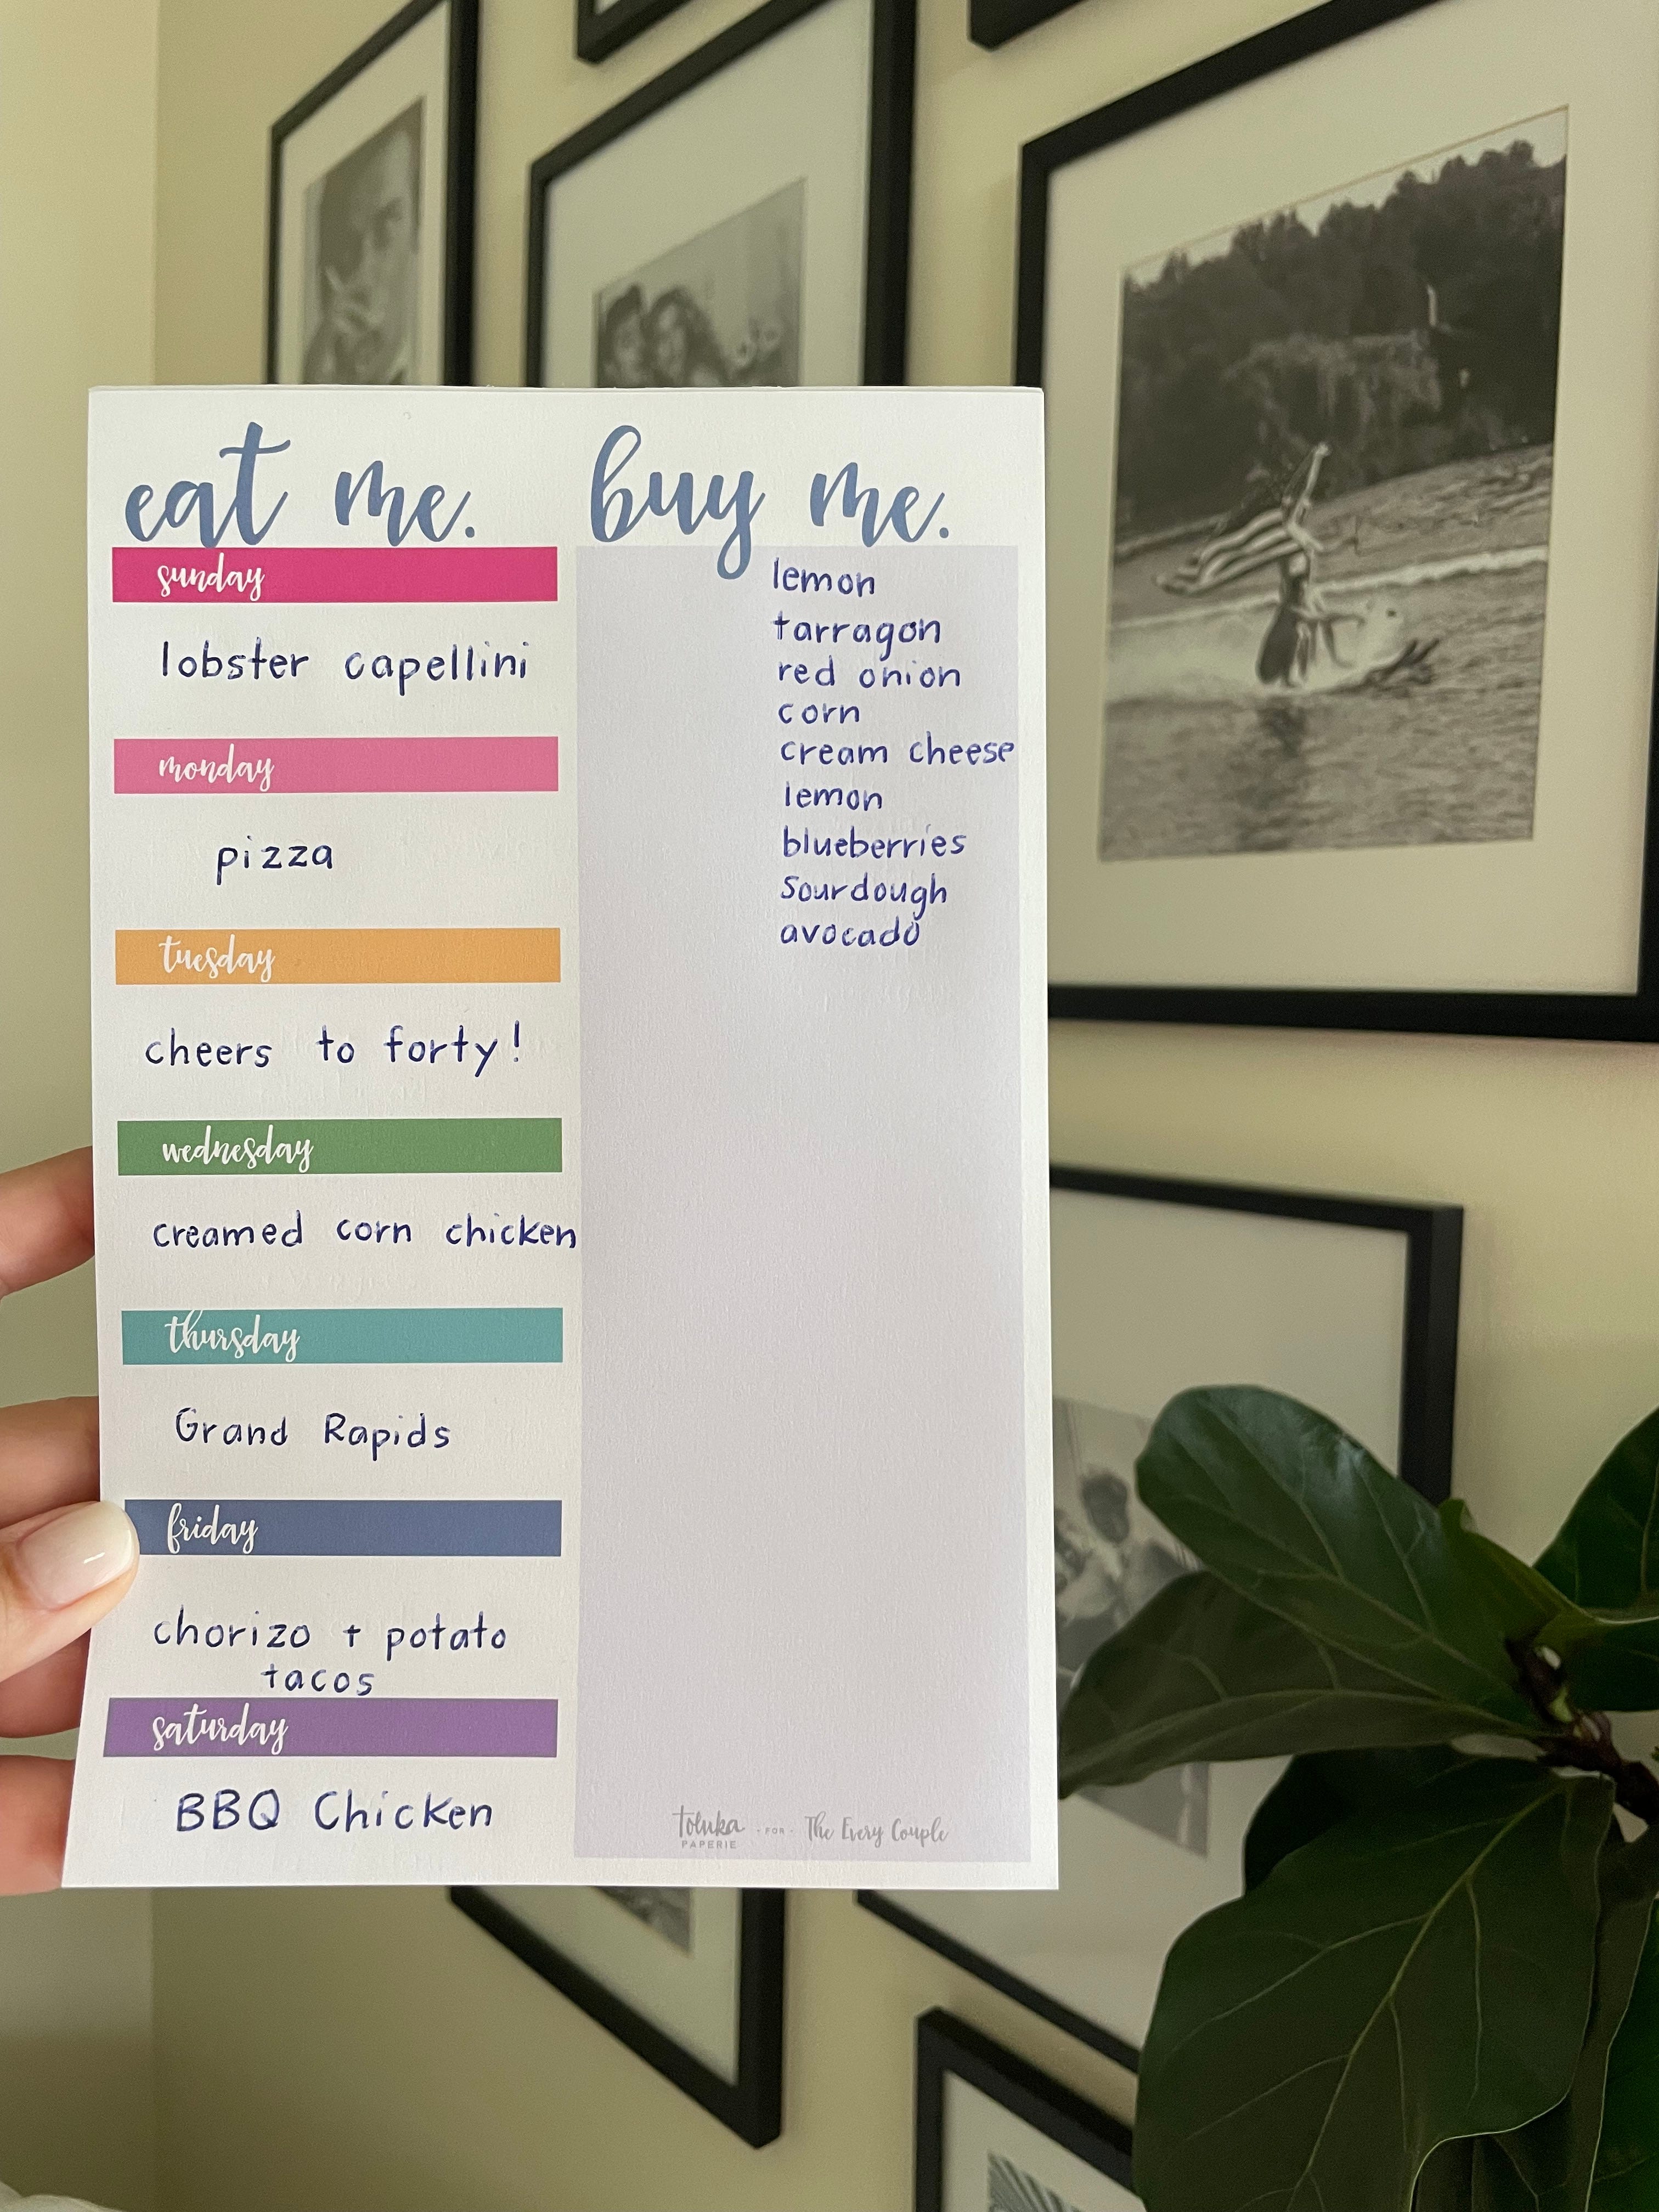 eat me.
sunday
lobster capellini
monday
pizza
tuesday
cheers to forty!
wednesday
creamed corn chicken
thursday
Grand Rapids
friday
chorizo + potato
tacos
saturday
BBQ Chicken
buy me.
lemon
tarragon
red onion
corn
cream cheese
lemon
blueberries
sourdough
avocado
toluka PAPERIE - FOR - The Every Couple